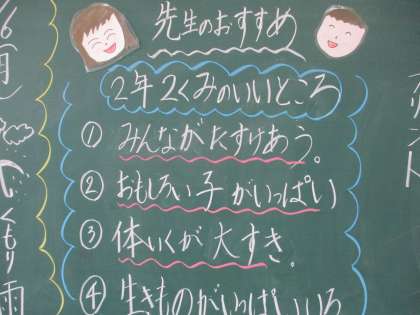 先生のおすすめ
2年2くみのいいところ
① みんながたすけあう。
② おもしろい子がいっぱい
③ 体いくが大すき。
④ 生きものがいっぱいいる
6
くもり
雨